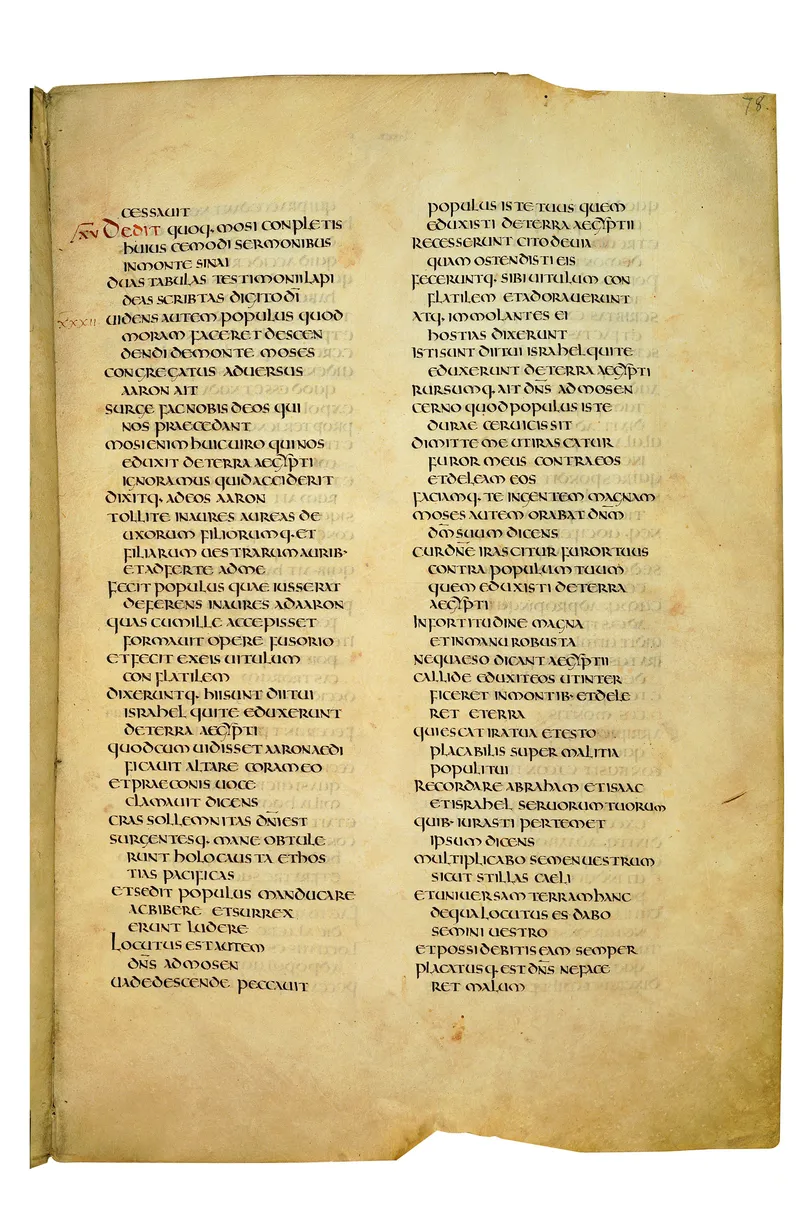 78.
CESSAUIT
XXV DEDIT QUOQ. MOSI CONPLETIS
HUIUS CEMODI SERMONIBUS
INMONTE SINAI
DUAS TABULAS TESTIMONII LAPI
DEAS SCRIBTAS DIGITO DĪ
XXXII UIDENS AUTEM POPULUS QUOD
MORAM FACERET DESCEN
DENDI DE MONTE MOSES
CONGREGATUS ADUERSUS
AARON AIT
SURGE FAC NOBIS DEOS QUI
NOS PRAECEDANT
MOSI ENIM HUIC UIRO QUI NOS
EDUXIT DE TERRA AEGYPTI
IGNORAMUS QUID ACCIDERIT
DIXITQ. AD EOS AARON
TOLLITE INAURES AUREAS DE
UXORUM FILIORUMQ. ET
FILIARUM UESTRARUM AURIB·
ET ADFERTE AD ME
FECIT POPULUS QUAE IUSSERAT
DEFERENS INAURES AD AARON
QUAS CUM ILLE ACCEPISSET
FORMAUIT OPERE FUSORIO
ET FECIT EX EIS UITULUM
CONFLATILEM
DIXERUNTQ. HII SUNT DII TUI
ISRAHEL QUI TE EDUXERUNT
DE TERRA AEGYPTI
QUOD CUM UIDISSET AARON AEDI
FICAUIT ALTARE CORAM EO
ET PRAECONIS UOCE
CLAMAUIT DICENS
CRAS SOLLEMNITAS DN̄I EST
SURGENTESQ. MANE OBTULE
RUNT HOLOCAUSTA ET HOS
TIAS PACIFICAS
ET SEDIT POPULUS MANDUCARE
AC BIBERE ET SURREX
ERUNT LUDERE
LOCUTUS EST AUTEM
DN̄S AD MOSEN
UADE DESCENDE PECCAUIT
POPULUS ISTE TUUS QUEM
EDUXISTI DE TERRA AEGYPTII
RECESSERUNT CITO DE UIA
QUAM OSTENDISTI EIS
FECERUNTQ. SIBI UITULUM CON
FLATILEM ET ADORAUERUNT
ATQ. IMMOLANTES EI
HOSTIAS DIXERUNT
ISTI SUNT DII TUI ISRAHEL QUI TE
EDUXERUNT DE TERRA AEGYPTI
RURSUMQ. AIT DN̄S AD MOSEN
CERNO QUOD POPULUS ISTE
DURAE CERUICIS SIT
DIMITTE ME UT IRASCATUR
FUROR MEUS CONTRA EOS
ET DELEAM EOS
FACIAMQ. TE IN GENTEM MAGNAM
MOSES AUTEM ORABAT DN̄M
DM̄ SUUM DICENS
CUR DN̄E IRASCITUR FUROR TUUS
CONTRA POPULUM TUUM
QUEM EDUXISTI DE TERRA
AEGYPTI
IN FORTITUDINE MAGNA
ET IN MANU ROBUSTA
NE QUAESO DICANT AEGYPTII
CALLIDE EDUXIT EOS UT INTER
FICERET IN MONTIB· ET DELE
RET E TERRA
QUIESCAT IRA TUA ET ESTO
PLACABILIS SUPER MALITIA
POPULI TUI
RECORDARE ABRAHAM ET ISAAC
ET ISRAHEL SERUORUM TUORUM
QUIB· IURASTI PER TEMET
IPSUM DICENS
MULTIPLICABO SEMEN UESTRUM
SICUT STILLAS CAELI
ET UNIUERSAM TERRAM HANC
DE QUA LOCUTUS ES DABO
SEMINI UESTRO
ET POSSIDEBITIS EAM SEMPER
PLACATUSQ. EST DN̄S NE FACE
RET MALUM